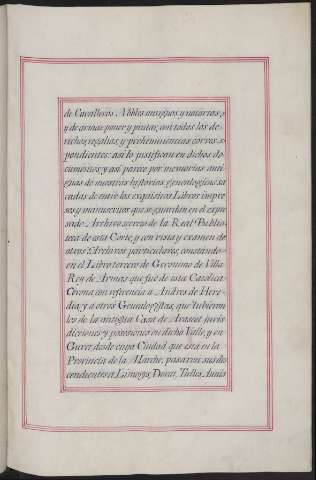 de Cavalleros, Nobles antiguos y notarios, y
y de armas poner y pintar, con todos los de-
rechos, regalias, y preheminencias corres-
pondientes: asi lo justifican en dichos do-
cumentos; y asi parece por memorias anti-
guas de nuestras historias genealogicas sa-
cadas de entre los exquisitos Libros impre-
sos y manuscritos que se guardan en el expre-
sado Archivo secreto de la Real Bibliio-
theca de esta Corte, y con vista y examen de
otros Archivos particulares; constando
en el Libro tercero de Geronimo de Villa
Rey de Armas que fué de esta Catolica
Corona, con referencia a Andres de Here-
dia, y a otros Genealogistas, que hubieron
los de la antigua Casa de
juris
dicciones y posesiones en dicho Valle, y en
Gueret desde cuya Ciudad que está en la
Provincia de la Marche, pasaron sus des-
cendientes á Limoges, Dorat, Tulles,